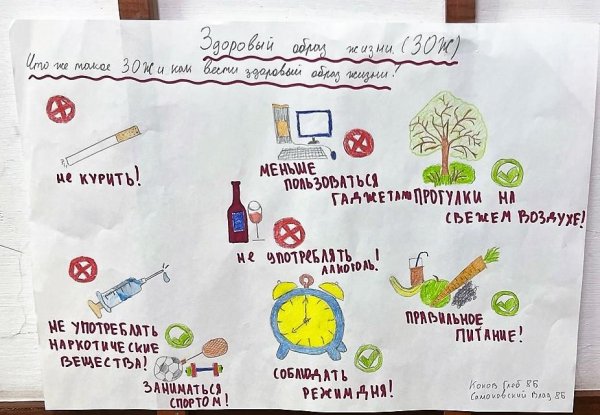 Здоровый образ жизни. (ЗОЖ)
Что же такое ЗОЖ и как вести здоровый образ жизни!
не курить!
МЕНЬШЕ
ПОЛЬЗОВАТЬСЯ
ГАДЖЕТАМ
ПРОГУЛКИ НА
СВЕЖЕМ ВОЗДУХЕ!
НЕ УПОТРЕБЛЯТЬ
АЛКОГОЛЬ!
НЕ УПОТРЕБЛЯТЬ
НАРКОТИЧЕСКИЕ
ВЕЩЕСТВА!
ЗАНИМАТЬСЯ
СПОРТОМ!
СОБЛЮДАТЬ
РЕЖИМ ДНЯ!
ПРАВИЛЬНОЕ
ПИТАНИЕ!
Глеб 8Б
Влад 8Б